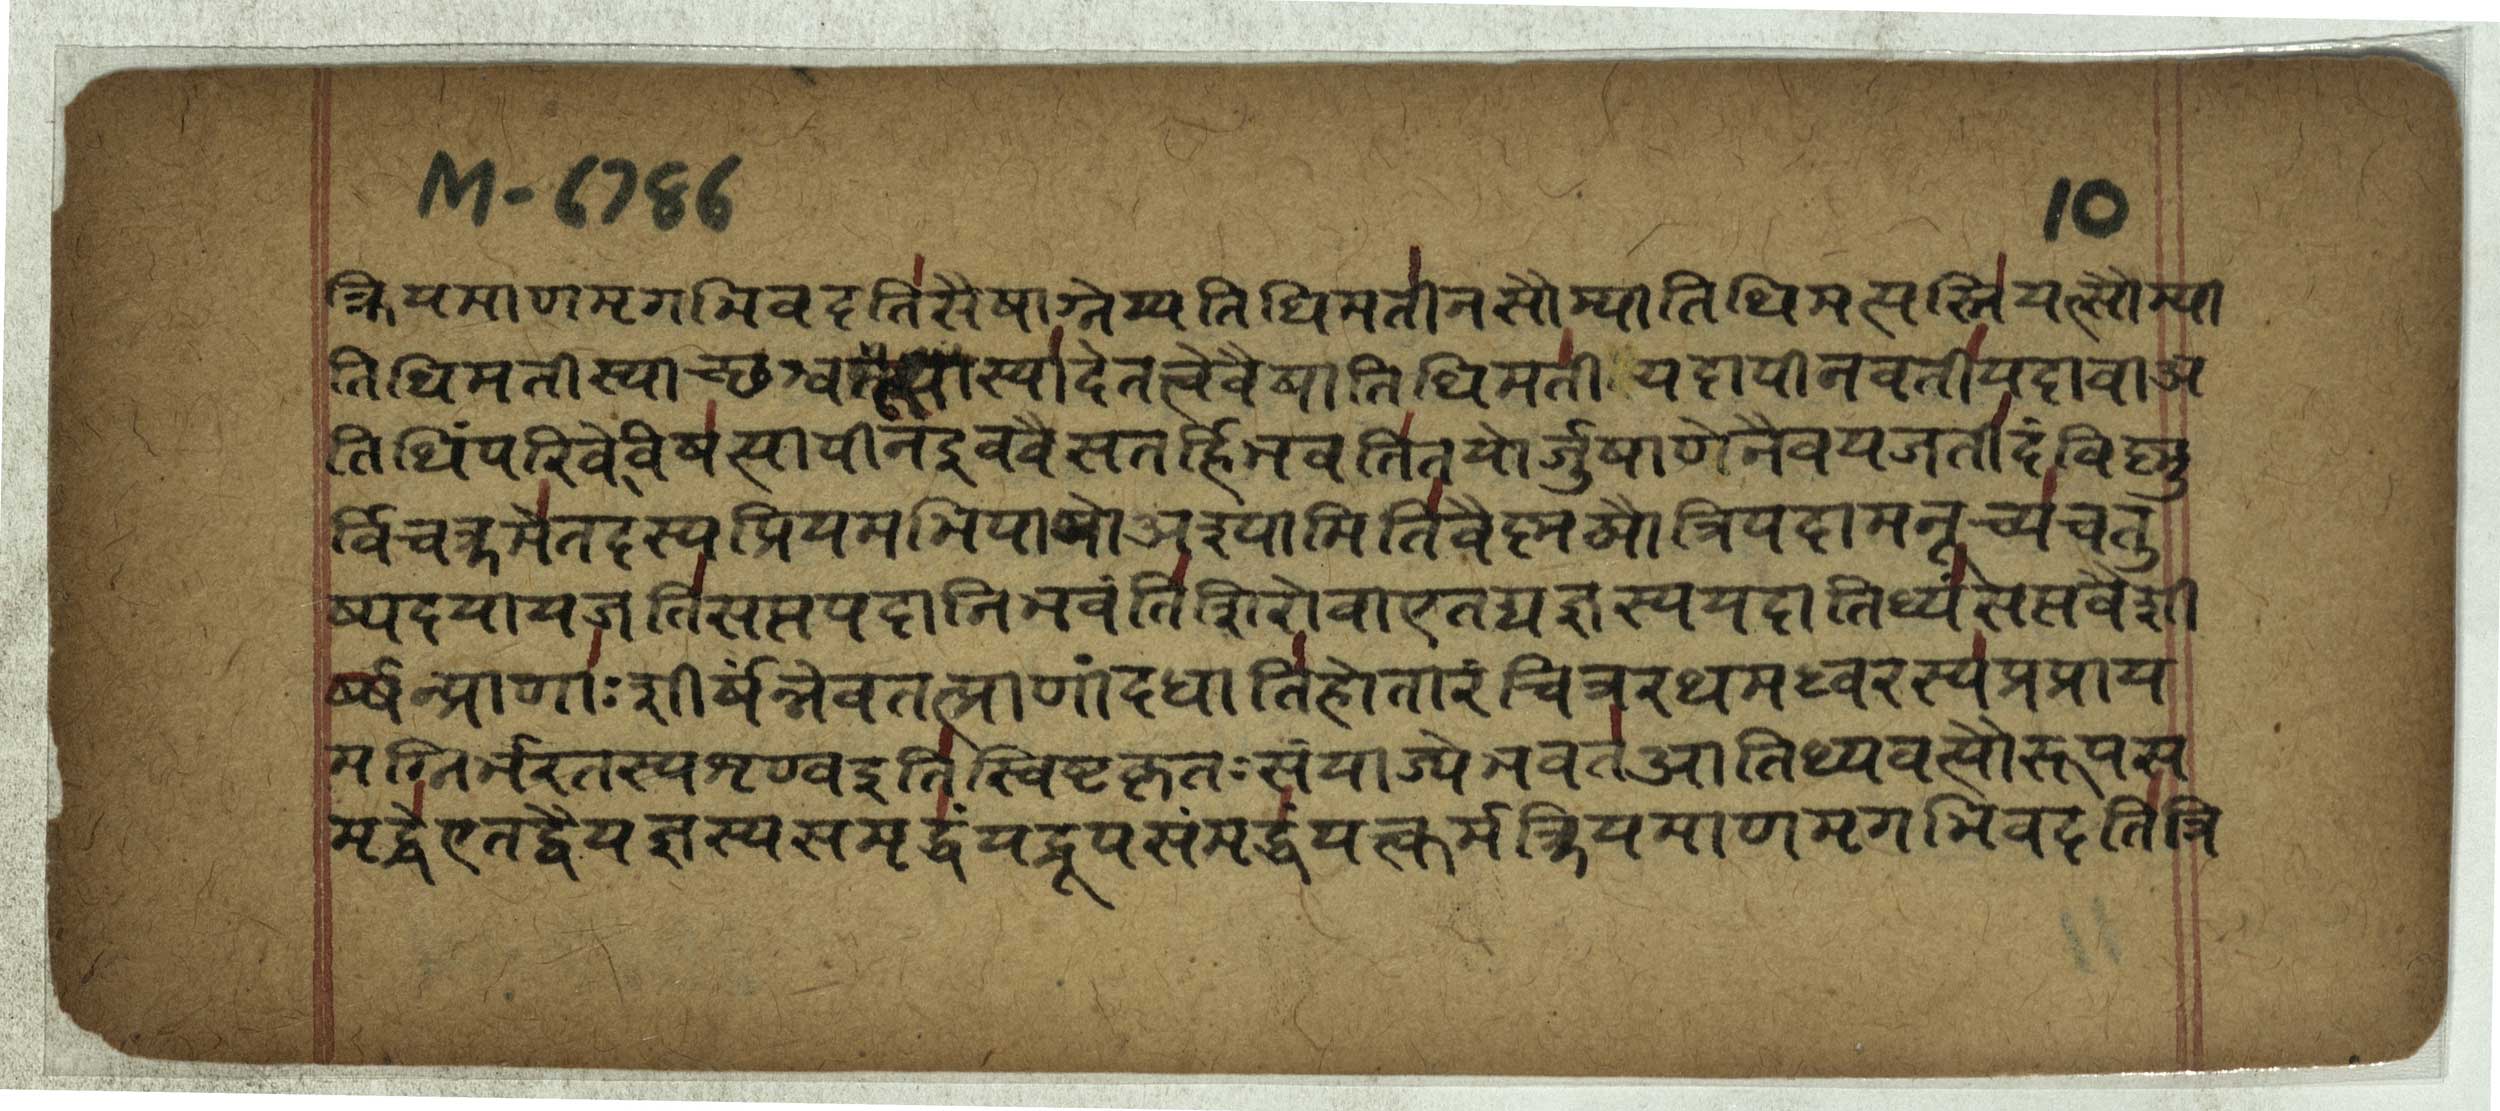 M-6786
10
त्क्रियमाणमृगभिवदतिसैषाग्नेय्यतिथिमतीनसौम्यातिथिमत्यस्तियत्सौम्या
तिथिमतीस्याच्छश्वत्सास्यादेतत्त्वेवैषातिथिमती यदापीनवतीयदावाअ
तिथिंपरिवेविषत्यापीनइववैसतर्हिभवतितयोर्जुषाणेनैवयजतीदंविष्णु
र्विचक्रमेतदस्यप्रियमभिपाथोअश्यामितिवैष्णव्यौत्रिपदामनूच्यचतु
ष्पदयायजतिसप्तपदानिभवंतिशिरोवाएतद्यज्ञस्ययदातिथ्यंसप्तवैशी
र्षन्प्राणाःशीर्षन्नेवतत्प्राणांदधातिहोतारंचित्ररथमध्वरस्यप्रप्राय
मग्निर्भरतस्यशृण्वइतिस्विष्टकृतःसंयाज्येभवतआतिथ्यवत्यौरूपस
मृद्धेएतद्वैयज्ञस्यसमृद्धंयद्रूपसंमृद्धंयत्कर्मक्रियमाणमृगभिवदतित्रि
11